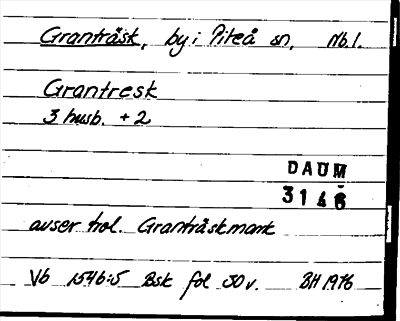 Granträsk, by i Piteå sn, Nb.l.
Grantresk
3 husb. + 2
DAUM
3146
avser trol. Granträskmark
Vb 1546:5 Bsk fol 30 v. BH 1976